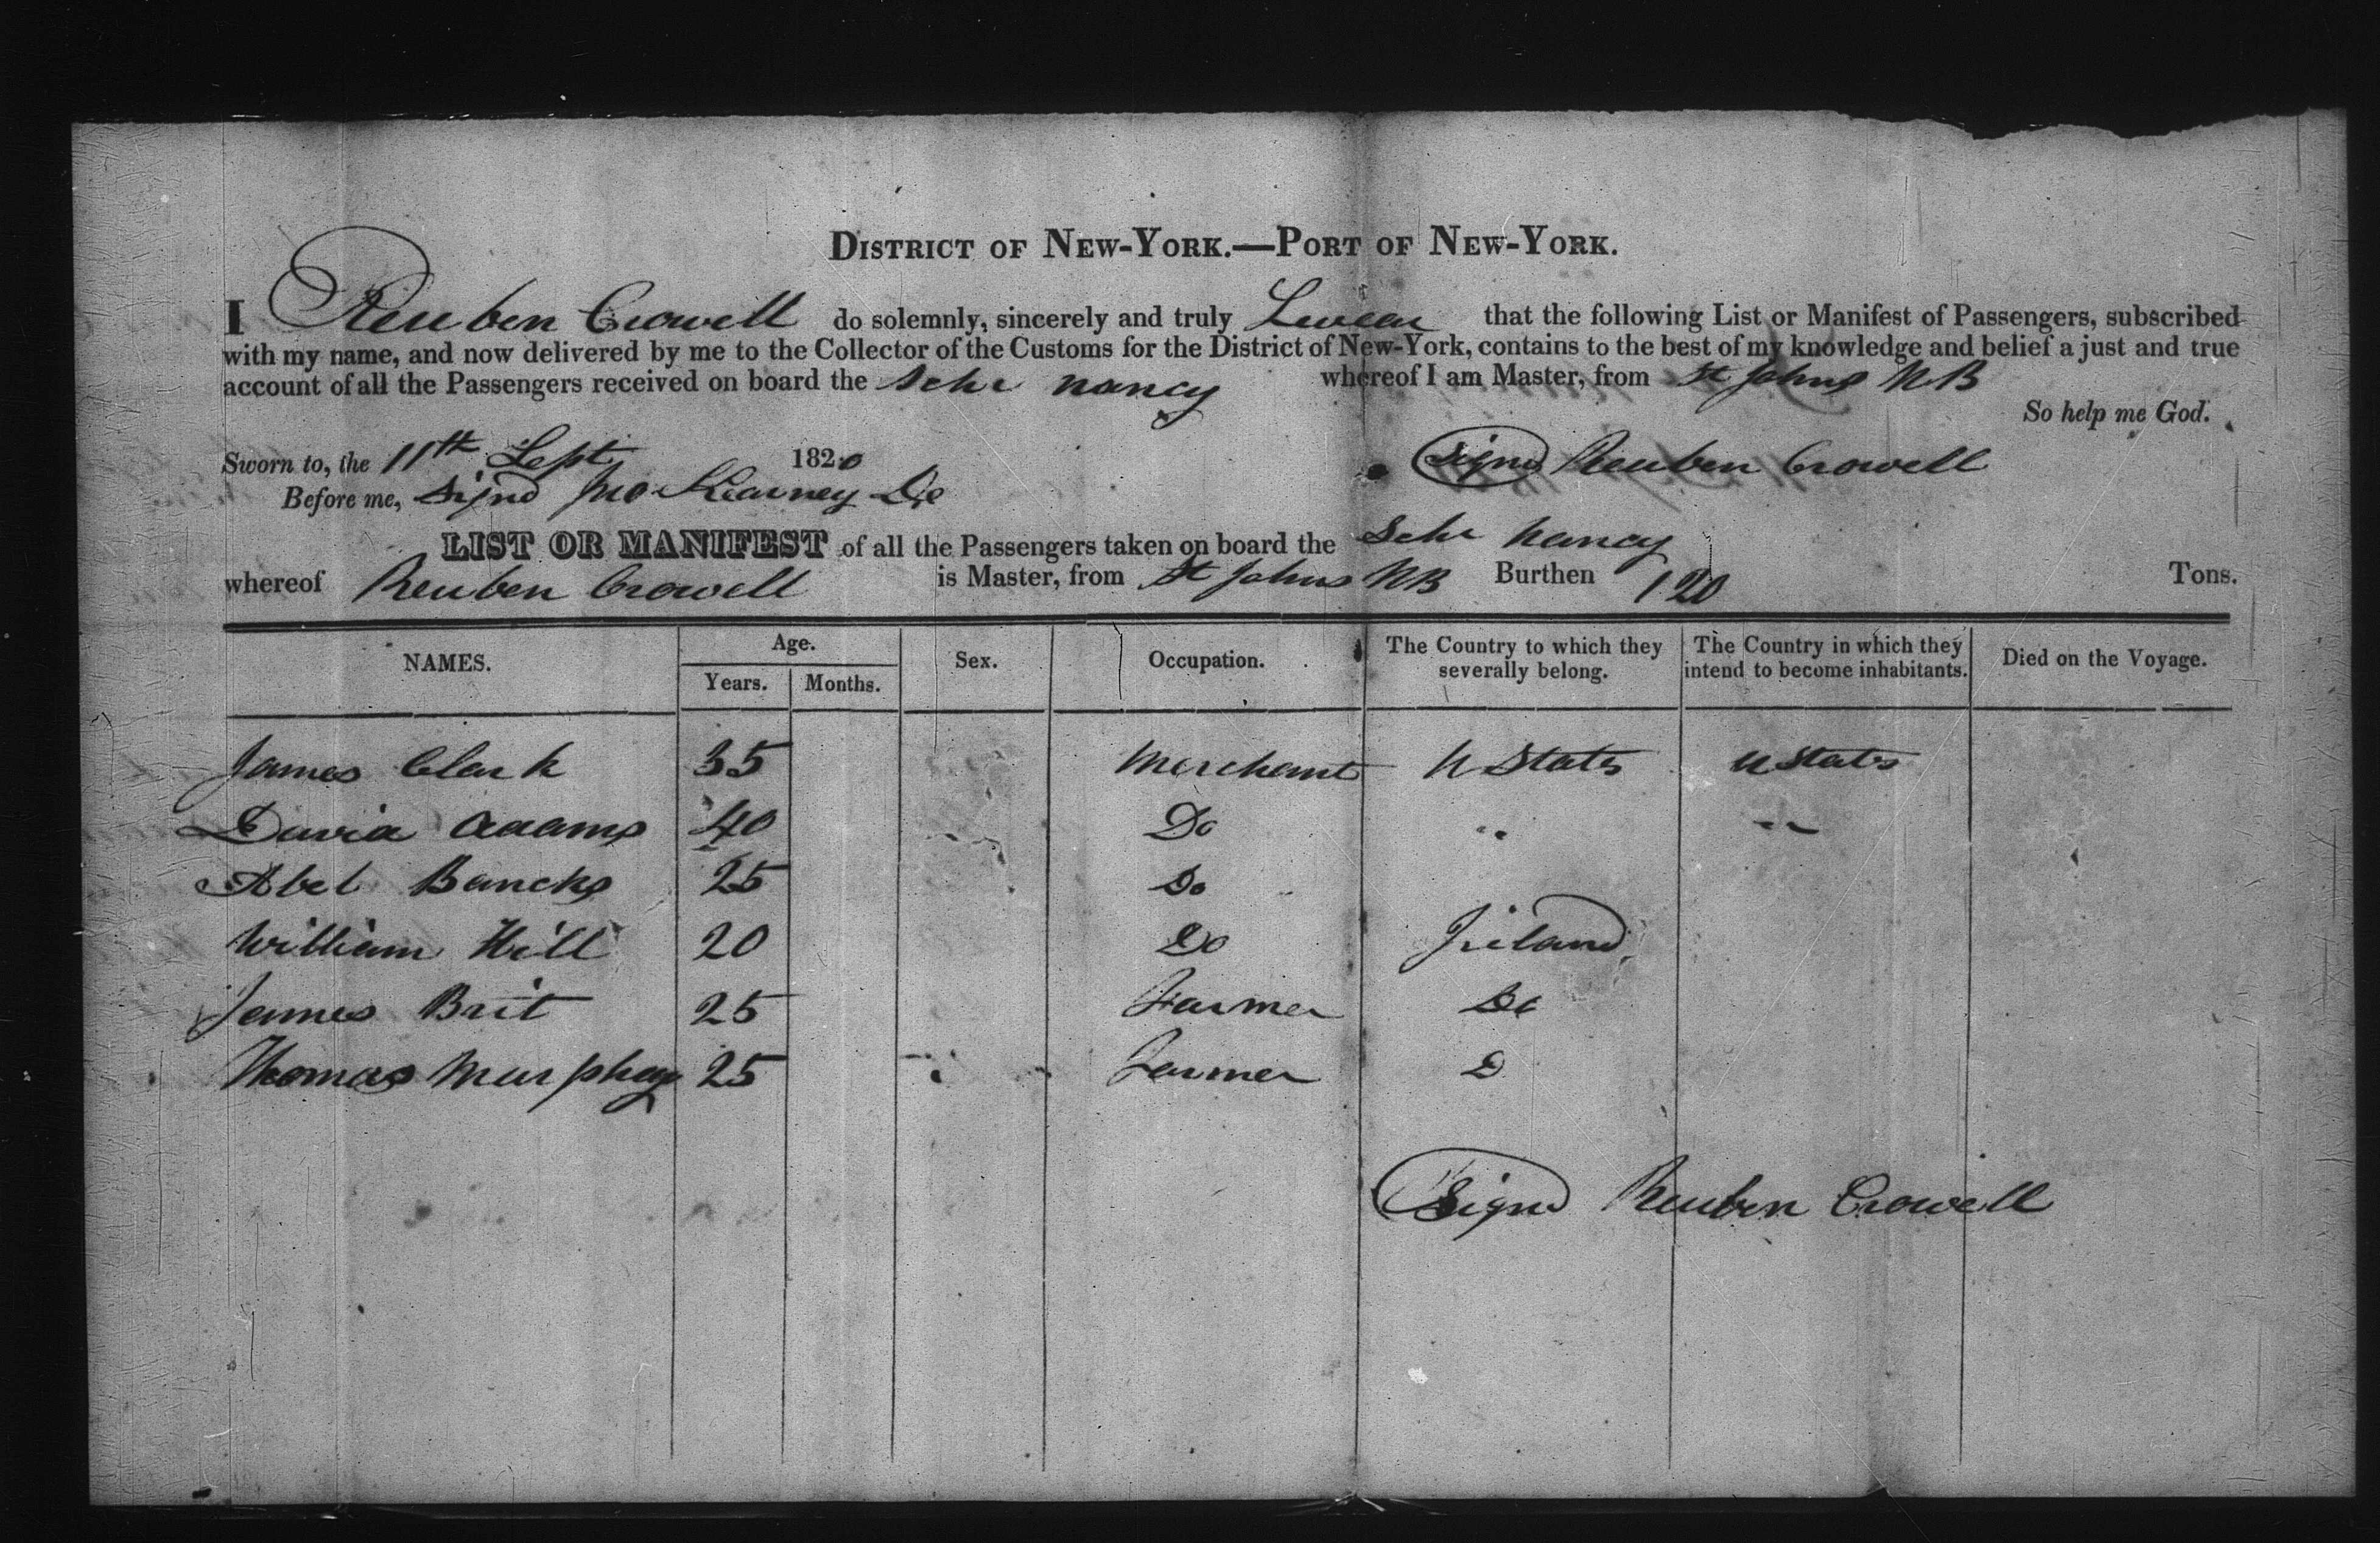 DISTRICT OF NEW-YORK.—PORT OF NEW-YORK.
I Reuben Crowell do solemnly, sincerely and truly Swear that the following List or Manifest of Passengers, subscribed
with my name, and now delivered by me to the Collector of the Customs for the District of New-York, contains to the best of my knowledge and belief a just and true
account of all the Passengers received on board the Schr Nancy whereof I am Master, from St Johns NB
So help me God.
Sworn to, the 11th Sept 1820 Signd Reuben Crowell
Before me, Signd Jno Kearney
LIST OR MANIFEST of all the Passengers taken on board the Schr Nancy
whereof Reuben Crowell is Master, from St Johns NB Burthen 120 Tons.
NAMES. Age. Years. Months. Sex. Occupation. The Country to which they severally belong. The Country in which they intend to become inhabitants. Died on the Voyage.
James Clark 35 Merchant U States U States
David Adams 40 Do " "
Abel Bancks 25 Do
William Hill 20 Do Ireland
James Brit 25 Farmer Do
Thomas Murphey 25 Farmer D
Signd Reuben Crowell